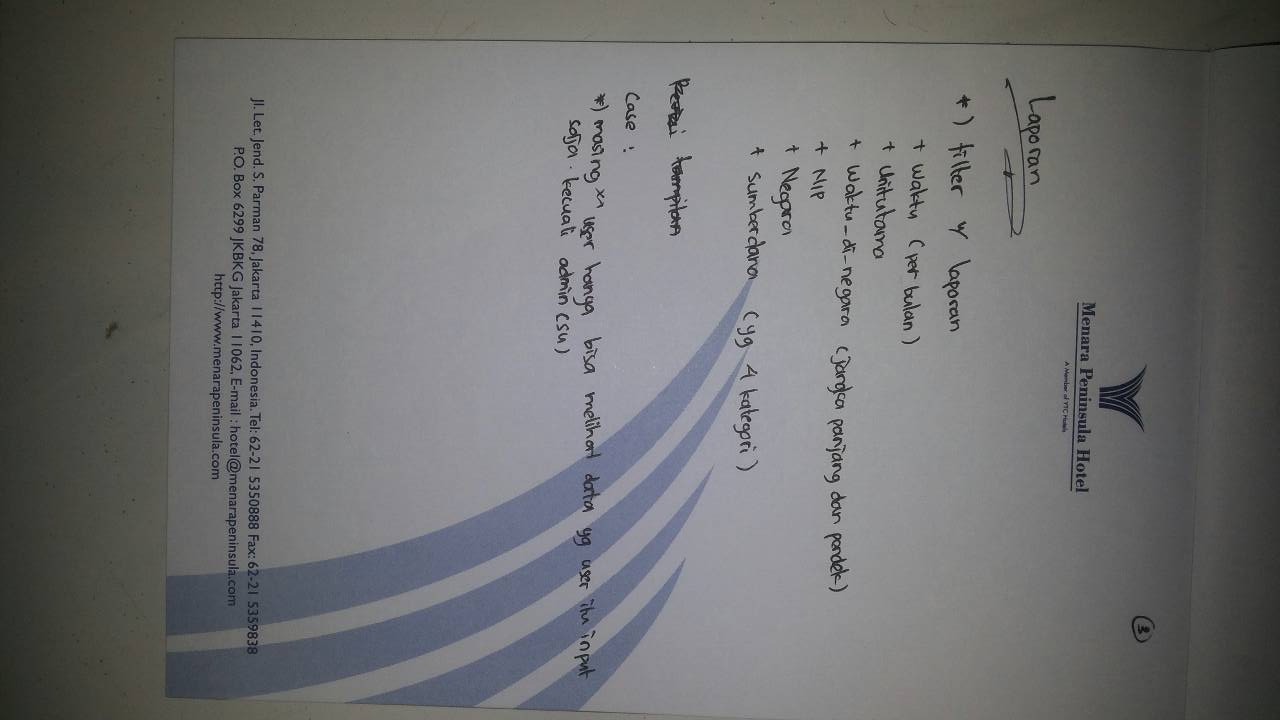 Menara Peninsula Hotel
A Member of YTC Hotels
3
Laporan
*) filter y laporan
+ Waktu (per bulan)
+ Unitutama
+ Waktu-di-negara (jangka panjang dan pendek)
+ NIP
+ Negara
+ Sumberdana (yg 4 kategori)
tampilan
Case :
*) masing x² user hanya bisa melihat data yg user itu input
saja. kecuali admin (su)
Jl. Let. Jend. S. Parman 78, Jakarta 11410, Indonesia. Tel: 62-21 5350888 Fax: 62-21 5359838
P.O. Box 6299 JKBKG Jakarta 11062, E-mail : hotel@menarapeninsula.com
http://www.menarapeninsula.com